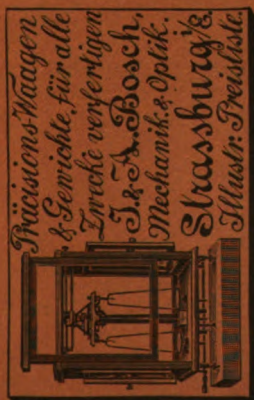 Präcisions-Waagen
& Gewichte, für alle
Zwecke verfertigen
J. & A. Bosch,
Mechanik. & Optik.
Strassburg i/E.
Illustr. Preisliste.